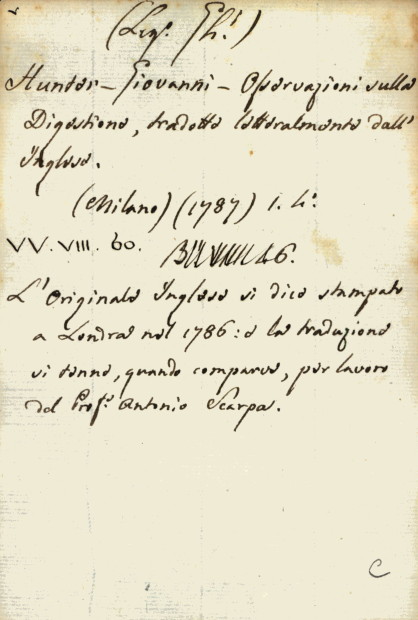 (Leg. Gh.)
Hunter - Giovanni - Osservazioni sulla
Digestione, tradotte letteralmente dall'
Inglese.
(Milano) (1787) 1. 4°.
VV. VIII. 60.
L'Originale Inglese si dice stampato
a Londra nel 1786: e la traduzione
si tenne, quando comparve, per lavoro
del Prof. Antonio Scarpa.
C